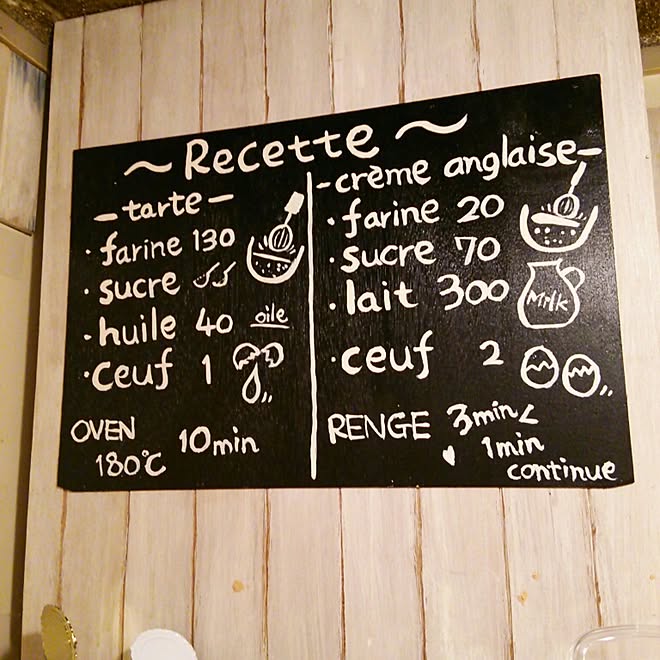 ~Recette~
-tarte-
・farine 130
・sucre
・huile 40 oile
・ceuf 1
OVEN
180℃ 10min
-crème anglaise-
・farine 20
・sucre 70
・lait 300 Milk
・ceuf 2
RENGE 3min
1min
continue